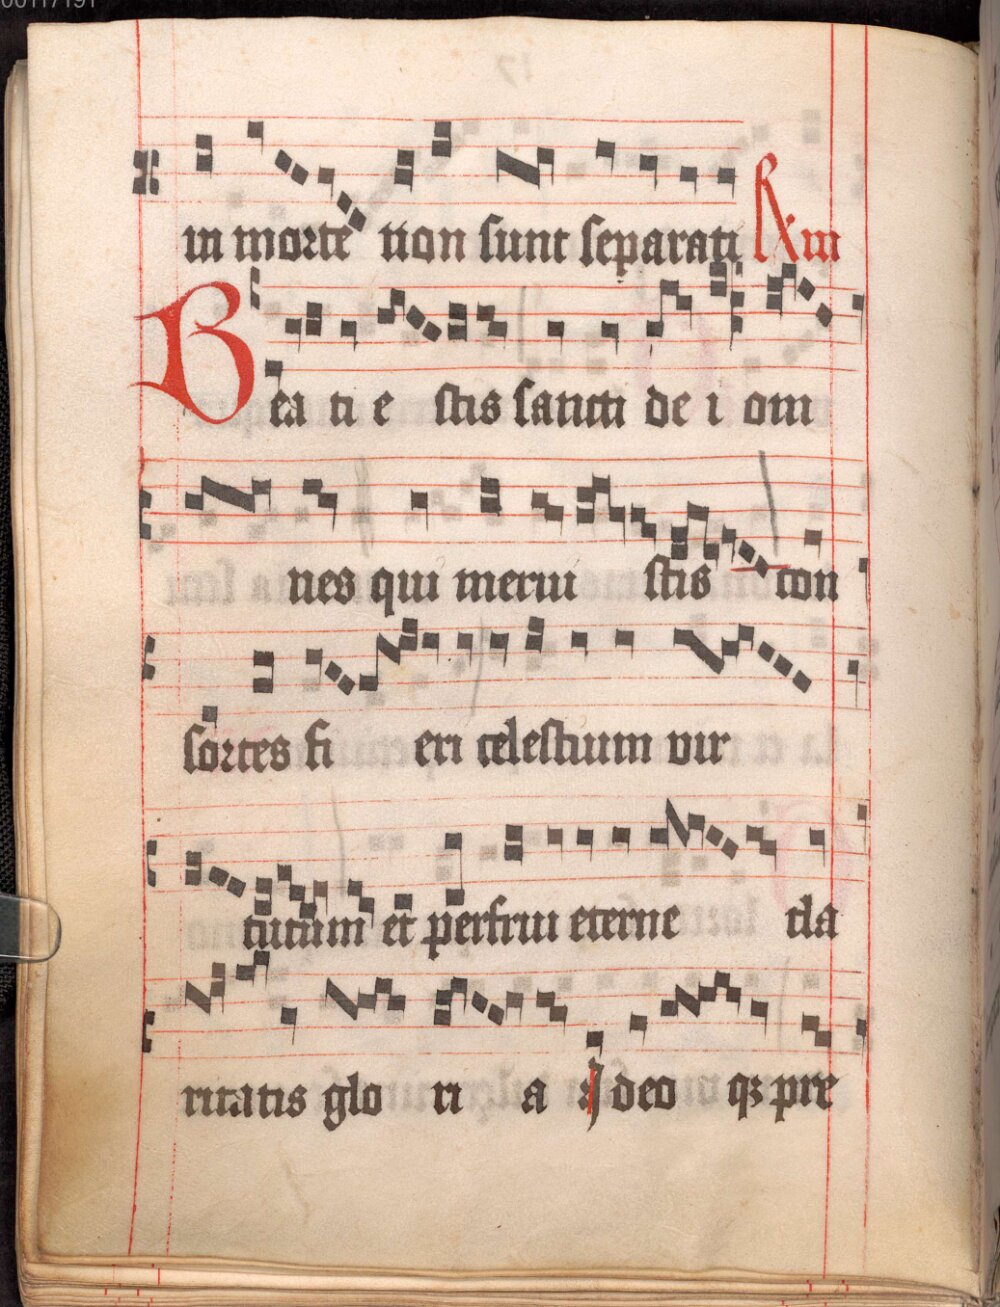 00117191
in morte non sunt separati R Xm
Bea ti e stis sancti de i om
nes qui merui stis con
sortes fi eri celestium vir
tutum et perfrui eterne cla
ritatis glo ri a deo qꝫ pre